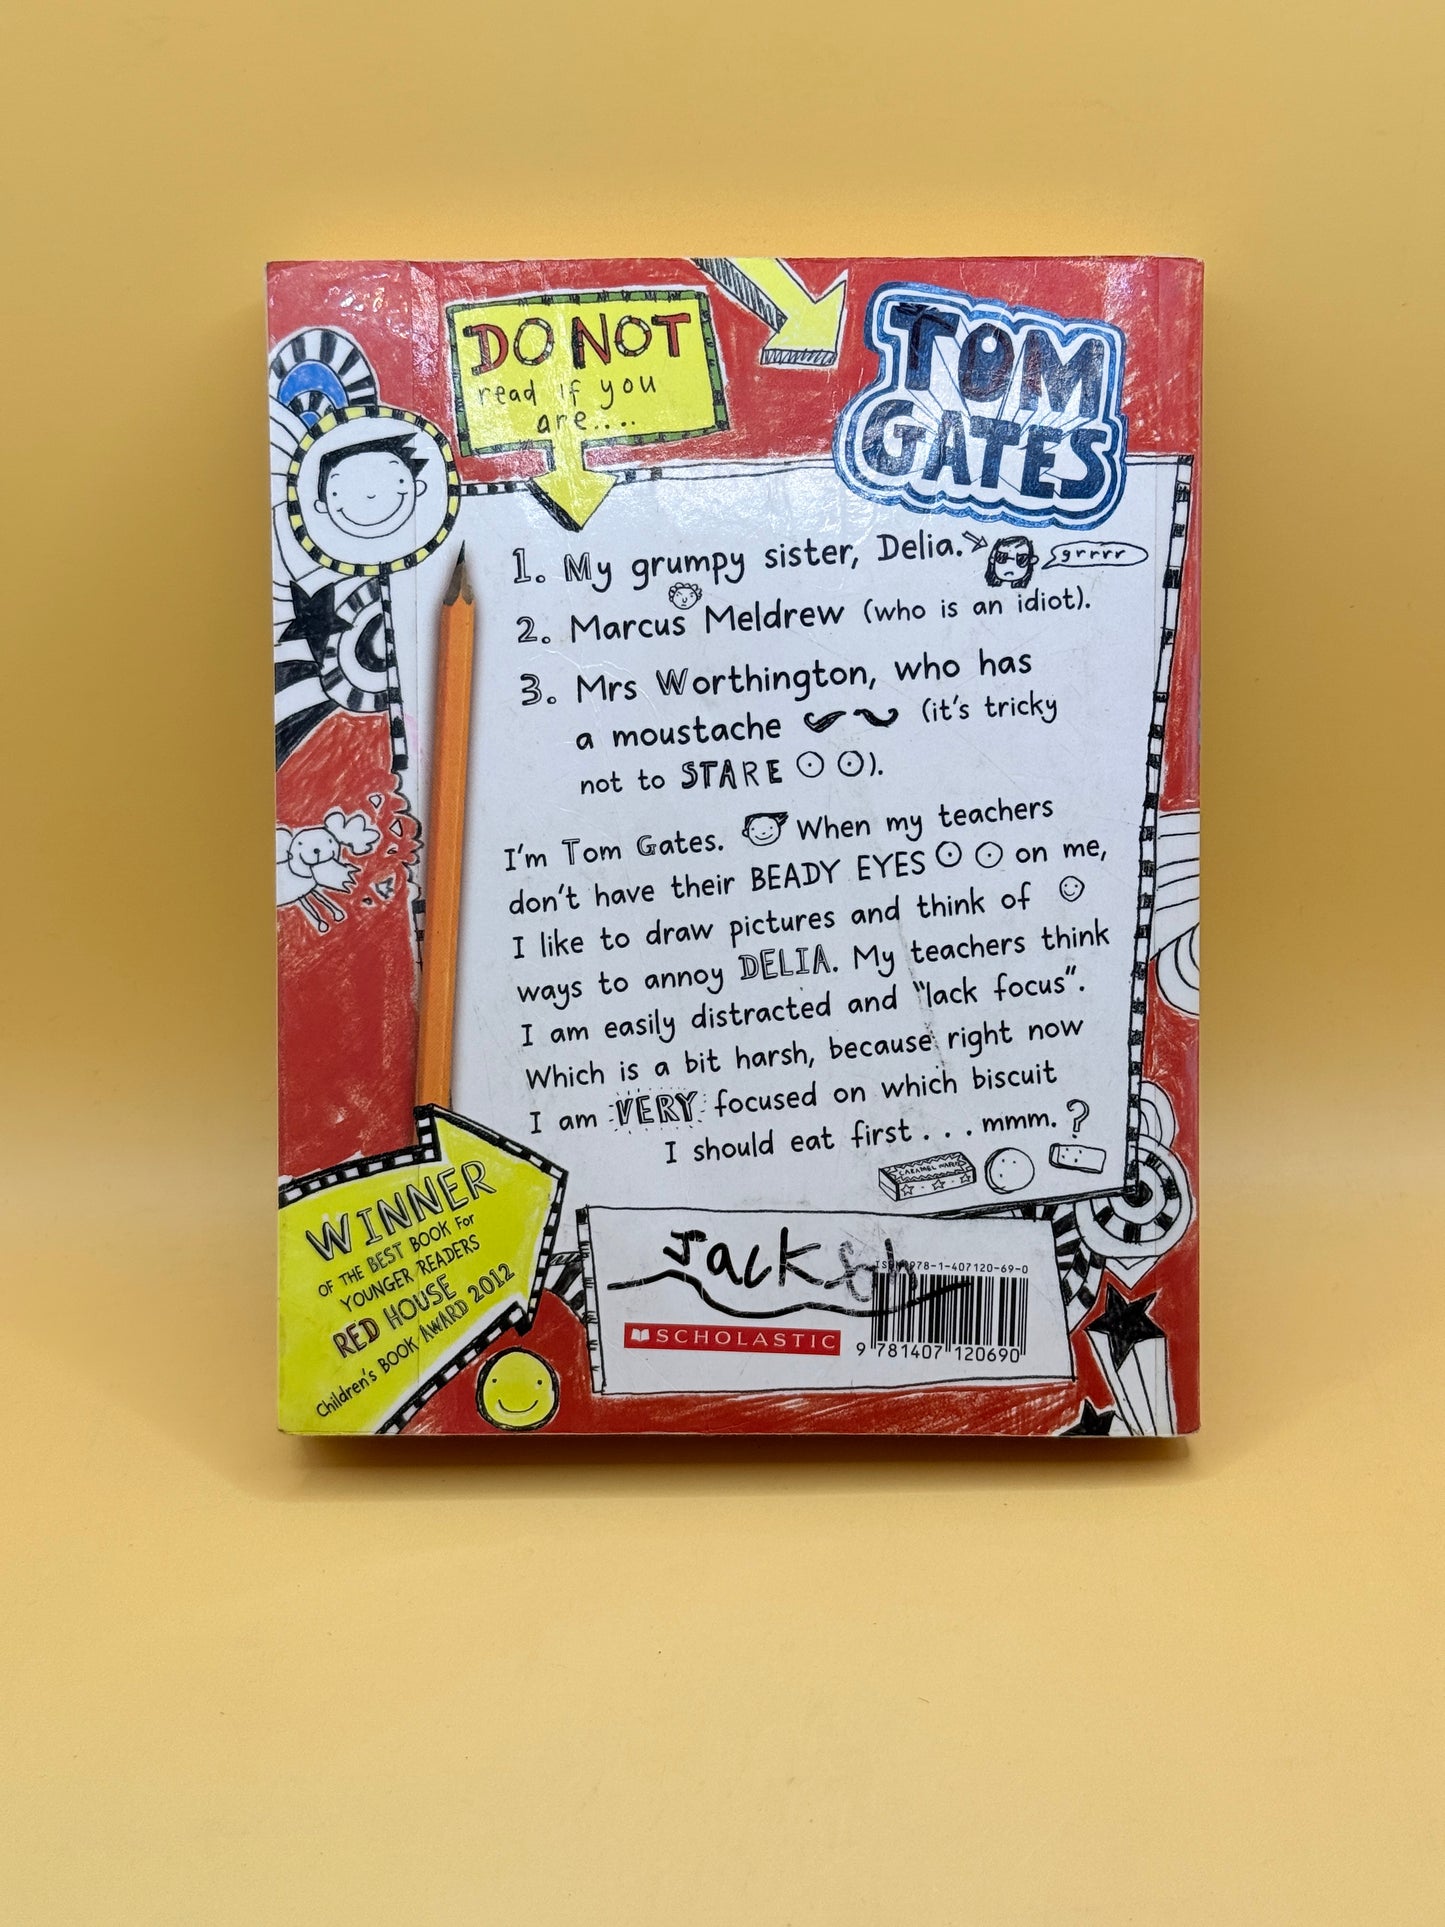 DO NOT
read if you
are....
TOM
GATES
1. My grumpy sister, Delia.
grrrr
2. Marcus Meldrew (who is an idiot).
3. Mrs Worthington, who has
a moustache (it's tricky
not to STARE).
I'm Tom Gates. When my teachers
don't have their BEADY EYES on me,
I like to draw pictures and think of
ways to annoy DELIA. My teachers think
I am easily distracted and "lack focus".
Which is a bit harsh, because right now
I am VERY focused on which biscuit
I should eat first... mmm. ?
CARAMEL WAFER
WINNER
OF THE BEST BOOK FOR
YOUNGER READERS
RED HOUSE
Children's BOOK AWARD 2012
Jack
ISBN 978-1-407120-69-0
SCHOLASTIC
9 781407 120690